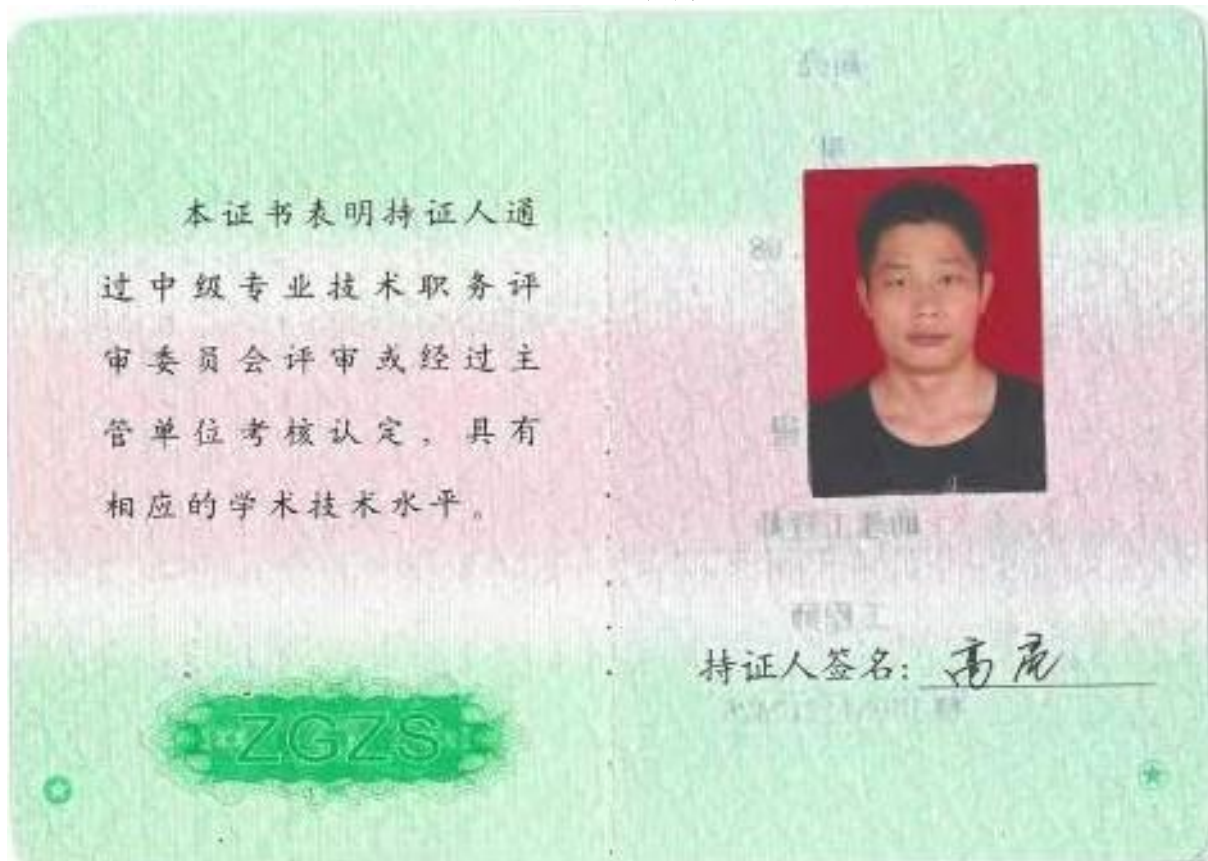 本证书表明持证人通
过中级专业技术职务评
审委员会评审或经过主
管单位考核认定，具有
相应的学术技术水平。
ZGZS
08
助理工程师
工程师
持证人签名：高虎